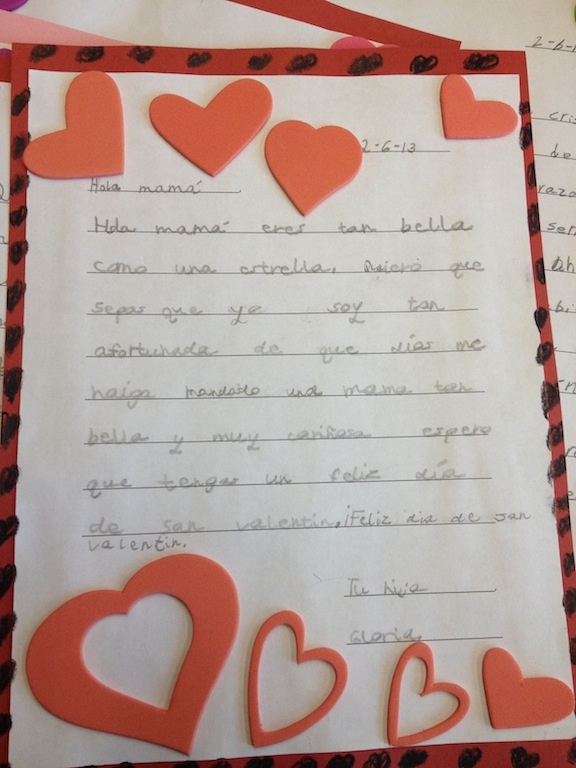 2-6-13
Hola mamá
Hola mamá eres tan bella
como una estrella, Quiero que
sepas que yo soy tan
afortunada de que días me
haiga mandado una mama tan
bella y muy cariñosa espero
que tengas un feliz día
de san valentin, ¡Feliz dia de san
valentin.
Tu hija
Gloria
2-6-1
cris
de
raza
ser
Dh
bi